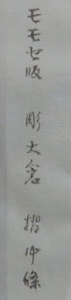 モモセ版 彫大倉 摺中條